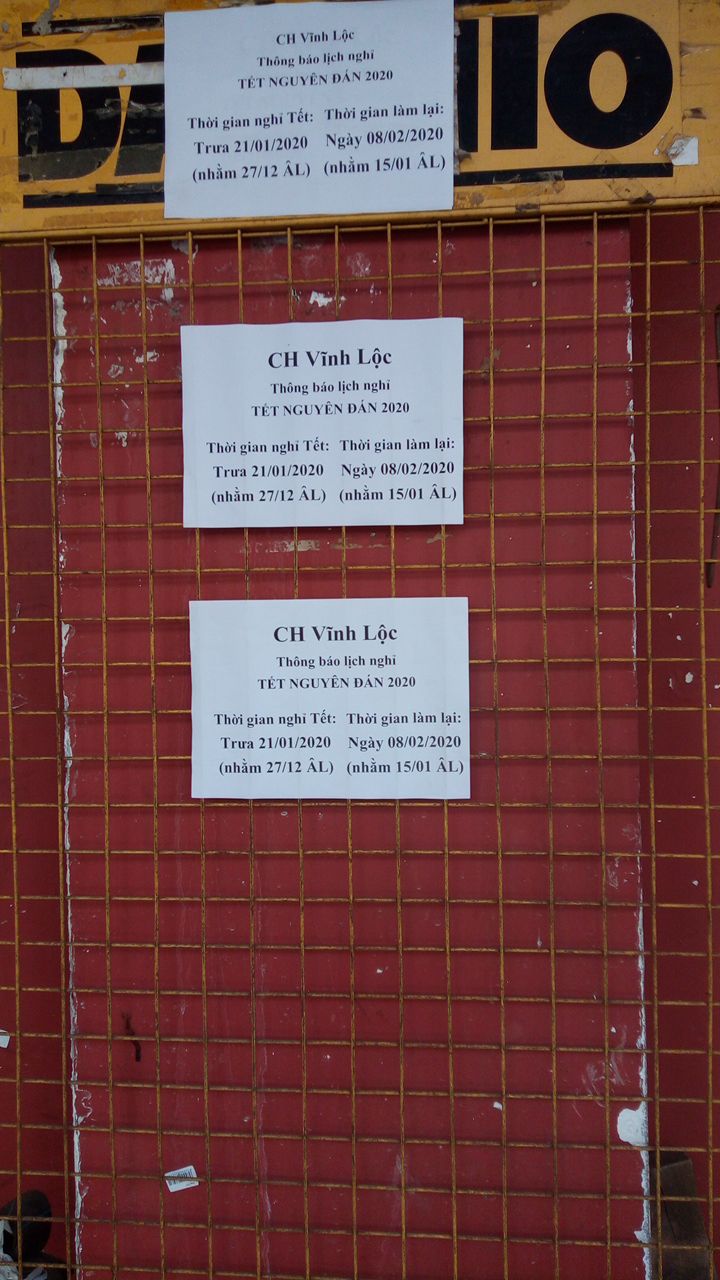 CH Vĩnh Lộc
Thông báo lịch nghỉ
TẾT NGUYÊN ĐÁN 2020
Thời gian nghỉ Tết: Thời gian làm lại:
Trưa 21/01/2020 Ngày 08/02/2020
(nhằm 27/12 ÂL) (nhằm 15/01 ÂL)
CH Vĩnh Lộc
Thông báo lịch nghỉ
TẾT NGUYÊN ĐÁN 2020
Thời gian nghỉ Tết: Thời gian làm lại:
Trưa 21/01/2020 Ngày 08/02/2020
(nhằm 27/12 ÂL) (nhằm 15/01 ÂL)
CH Vĩnh Lộc
Thông báo lịch nghỉ
TẾT NGUYÊN ĐÁN 2020
Thời gian nghỉ Tết: Thời gian làm lại:
Trưa 21/01/2020 Ngày 08/02/2020
(nhằm 27/12 ÂL) (nhằm 15/01 ÂL)